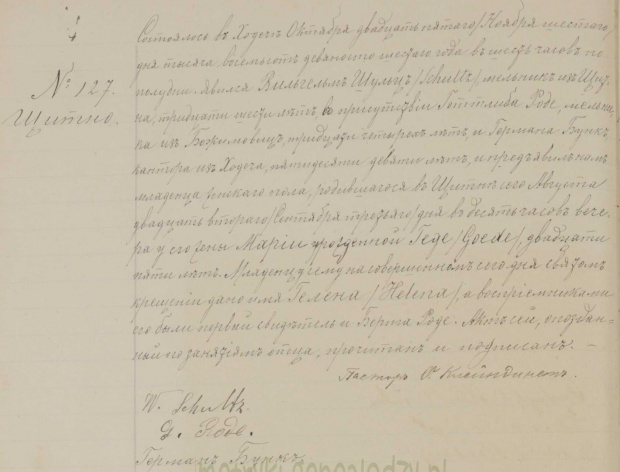 № 127.
Щитно.
Состоялось въ Ходечъ Октября двадцать пятаго /Ноября шестого/
дня тысяча восемьсотъ девяносто шестаго года въ шесть часовъ по
полудни. явился Вильгельмъ Шульцъ /Schultz/ мельникъ изъ Щит-
на, тридцати шести лѣтъ, въ присутствіи Готтлиба Роде, мельни-
ка изъ , тридцати четырехъ лѣтъ, и Германа Бункъ,
кантора изъ Ходеча, пятидесяти девяти лѣтъ, и предъявилъ намъ
младенца женскаго пола, родившагося въ Щитнѣ сего Августа
двадцать втораго /Сентября третьяго/ дня въ десять часовъ вече-
ра у его жены Маріи урожденной Геде /Goede/, двадцати
пяти лѣтъ. Младенцу сему на совершенномъ сего дня святомъ
крещеніи дано имя Гелена /Helena/, а воспріемниками
его были первый свидѣтель и Берта Роде. Актъ сей, опоздан-
ный по занятіямъ отца, прочитанъ и подписанъ. —
Пасторъ
W. Schultz.
G. Rode.
Германъ Бункъ
genealodzy.pl